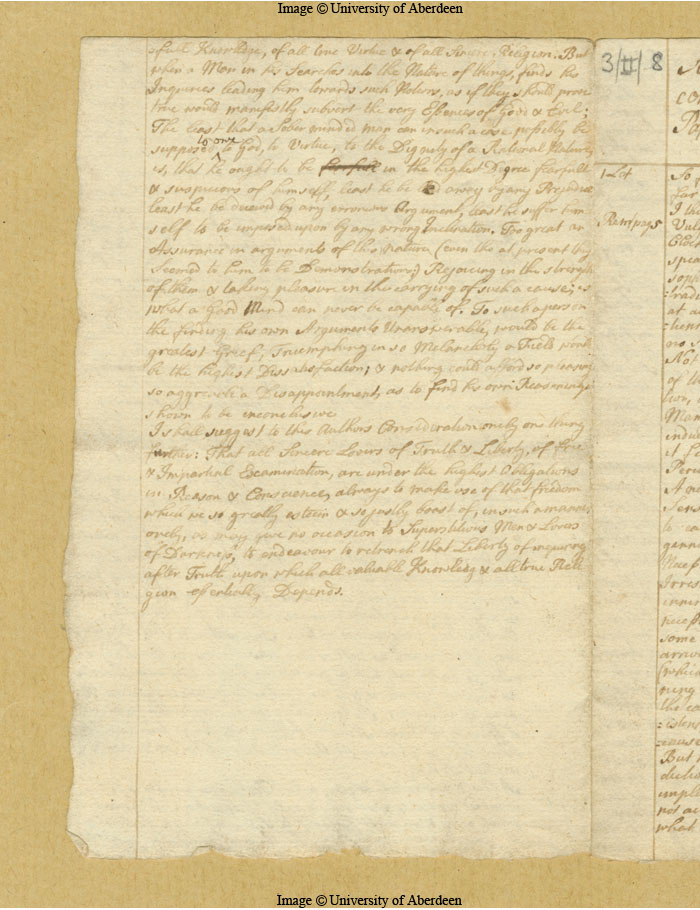 Image © University of Aberdeen
of all Knowledge, of all true Virtue & of all Sincere Religion. But
when a Man in his Searches into the Nature of things, finds his
Inquiries leading him towards such Notions, as if they should prove
true would manifestly subvert the very Essences of Good & Evil;
The least that a Sober minded man can in such a case possibly be
supposed to owe to God, to Virtue, to the Dignity of a Rational Nature
is, that he ought to be fearfull in the highest Degree fearfull
& suspicious of himself, least he be led away by any Prejudice
least he be deceived by any erronious Argument, least he suffer him
self to be imposed upon by any wrong inclination. Too great an
Assurance in arguments of this nature (even tho at present they
seemed to him to be Demonstrations) Rejoicing in the strength
of them & taking pleasure in the carrying of such a cause; is
what a Good Mind can never be capable of. To such a person
the finding his own Arguments Unanswerable, would be the
greatest Grief; Triumphing in so Melancholy a Field would
be the highest Dissatisfaction; & nothing could afford so pleasing
so aggreeable a Disappointment, as to find his own Reasonings
shown to be inconclusive
I shall suggest to this Authors Consideration onely one thing
further: That all Sincere Lovers of Truth & Liberty, of free
& Impartial Examination, are under the highest Obligations
in Reason & Conscience, always to make use of that freedom
which we so greatly esteem & so justly boast of, in such a manner
onely, as may give no occasion to Superstitious Men & Lovers
of Darkness to endeavour to retrench that Liberty of inquiring
after Truth upon which all valuable Knowledg & all true Reli
gion essentially Depends.
3/II/8
1 Let
So
far
at a
no s
Not
of th
Man
it fo
Sens
to
some
the ca
But
not a
what
Image © University of Aberdeen